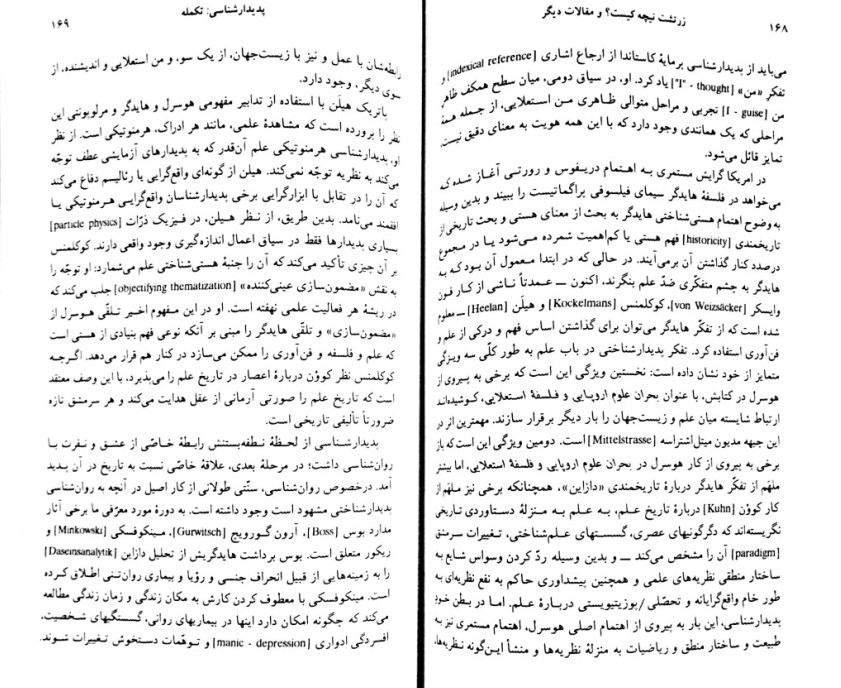 ۱۶۸
زرتشت نیچه کیست؟ و مقالات دیگر
می‌باید از پدیدارشناسی برمایهٔ کاستاندا از ارجاع اشاری [indexical reference] و
تفکرِ «من» ["I" - thought] یاد کرد. او، در سیاق دومی، میان سطح همکف ظاهر
من [I - guise] تجربی و مراحل متوالی ظاهری من استعلایی، از جمله همهٔ
مراحلی که یک همانندی وجود دارد که با این همه هویت به معنای دقیق نیست،
تمایز قائل می‌شود.
در امریکا گرایش مستمری به اهتمام دریفوس و رورتی آغاز شده که
می‌خواهد در فلسفهٔ هایدگر سیمای فیلسوفی پراگماتیست را ببیند و بدین وسیله
به وضوح اهتمام هستی‌شناختی هایدگر به بحث از معنای هستی و بحث تاریخی از
تاریخمندی [historicity] فهم هستی یا کم‌اهمیت شمرده می‌شود یا در مجموع
درصدد کنار گذاشتن آن برمی‌آیند. در حالی که در ابتدا معمول آن بود که به
هایدگر به چشم متفکری ضدّ علم بنگرند، اکنون ــ عمدتاً ناشی از کار فون
وایسکر [von Weizsäcker]، کوکلمنس [Kockelmans] و هیلَن [Heelan] ــ معلوم
شده است که از تفکّر هایدگر می‌توان برای گذاشتن اساس فهم و درکی از علم و
فن‌آوری استفاده کرد. تفکر پدیدارشناختی در باب علم به طور کلّی سه ویژگی
متمایز از خود نشان داده است: نخستین ویژگی این است که برخی به پیروی از
هوسرل در کتابش، با عنوان بحران علوم اروپایی و فلسفهٔ استعلایی، کوشیده‌اند
ارتباط شایسته میان علم و زیست‌جهان را بار دیگر برقرار سازند. مهمترین اثر در
این جبهه مدیون میتل‌اشتراسه [Mittelstrasse] است. دومین ویژگی این است که باز
برخی به پیروی از کار هوسرل در بحران علوم اروپایی و فلسفهٔ استعلایی، اما بیشتر
ملهَم از تفکّر هایدگر دربارهٔ تاریخمندی «دازاین»، همچنانکه برخی نیز ملهَم از
کار کوؤن [Kuhn] دربارهٔ تاریخ علم، به علم به منزلهٔ دستاوردی تاریخی
نگریسته‌اند که دگرگونیهای عصری، گسستهای علم‌شناختی، تغییرات سرمشق
[paradigm] آن را مشخص می‌کند ــ و بدین وسیله ردّ کردن وسواس شایع به
ساختار منطقی نظریه‌های علمی و همچنین پیشداوری حاکم به نفع نظریه‌ای به
طور خام واقع‌گرایانه و تحصّلی/پوزیتیویستی دربارهٔ علم. اما در بطن خودِ
پدیدارشناسی، این بار به پیروی از اهتمام اصلی هوسرل، اهتمام مستمری نیز به
طبیعت و ساختار منطق و ریاضیات به منزلهٔ نظریه‌ها و منشأ این‌گونه نظریه‌ها،
پدیدارشناسی: تکمله
۱۶۹
رابطه‌شان با عمل و نیز با زیست‌جهان، از یک سو، و من استعلایی و اندیشنده، از
سوی دیگر، وجود دارد.
پاتریک هیلَن با استفاده از تدابیر مفهومی هوسرل و هایدگر و مرلوبونتی این
نظر را پرورده است که مشاهدهٔ علمی، مانند هر ادراک، هرمنوتیکی است. از نظر
او، پدیدارشناسی هرمنوتیکی علم آن‌قدر که به پدیدارهای آزمایشی عطف توجّه
می‌کند به نظریه توجّه نمی‌کند. هیلن از گونه‌ای واقع‌گرایی یا رئالیسم دفاع می‌کند
که آن را در تقابل با ابزارگرایی برخی پدیدارشناسان واقع‌گرایی هرمنوتیکی یا
افقمند می‌نامد. بدین طریق، از نظر هیلن، در فیزیک ذرّات [particle physics]
بسیاری پدیدارها فقط در سیاق اعمال اندازه‌گیری وجود واقعی دارند. کوکلمنس
بر آن چیزی تأکید می‌کند که آن را جنبهٔ هستی‌شناختی علم می‌شمارد: او توجّه را
به نقش «مضمون‌سازی عینی‌کننده» [objectifying thematization] جلب می‌کند که
در ریشهٔ هر فعالیت علمی نهفته است. او در این مفهوم اخیر تلقّی هوسرل از
«مضمون‌سازی» و تلقّی هایدگر را مبنی بر آنکه نوعی فهم بنیادی از هستی است
که علم و فلسفه و فن‌آوری را ممکن می‌سازد در کنار هم قرار می‌دهد. اگرچه
کوکلمنس نظر کوؤن دربارهٔ اعصار در تاریخ علم را می‌پذیرد، با این وصف معتقد
است که تاریخ علم را صورتی آرمانی از عقل هدایت می‌کند و هر سرمشق تازه
ضرورتاً تألیفی تاریخی است.
پدیدارشناسی از لحظهٔ نطفه‌بستنش رابطهٔ خاصّی از عشق و نفرت با
روان‌شناسی داشت؛ در مرحلهٔ بعدی، علاقهٔ خاصّی نسبت به تاریخ در آن پدید
آمد. درخصوص روان‌شناسی، سنّتی طولانی از کار اصیل در آنچه به روان‌شناسی
پدیدارشناختی مشهود است وجود داشته است. به دورهٔ مورد معرّفی ما برخی آثار
مدارد بوس [Boss]، آرون گورویچ [Gurwitsch]، مینکوفسکی [Minkowski] و
ریکور متعلق است. بوس برداشت هایدگریش از تحلیل دازاین [Daseinsanalytik]
را به زمینه‌هایی از قبیل انحراف جنسی و رؤیا و بیماری روان‌تنی اطلاق کرده
است. مینکوفسکی با معطوف کردن کارش به مکان زندگی و زمان زندگی مطالعه
می‌کند که چگونه امکان دارد اینها در بیماریهای روانی، گسستگیهای شخصیت،
افسردگی ادواری [manic - depression] و توهّمات دستخوش تغییرات شوند.